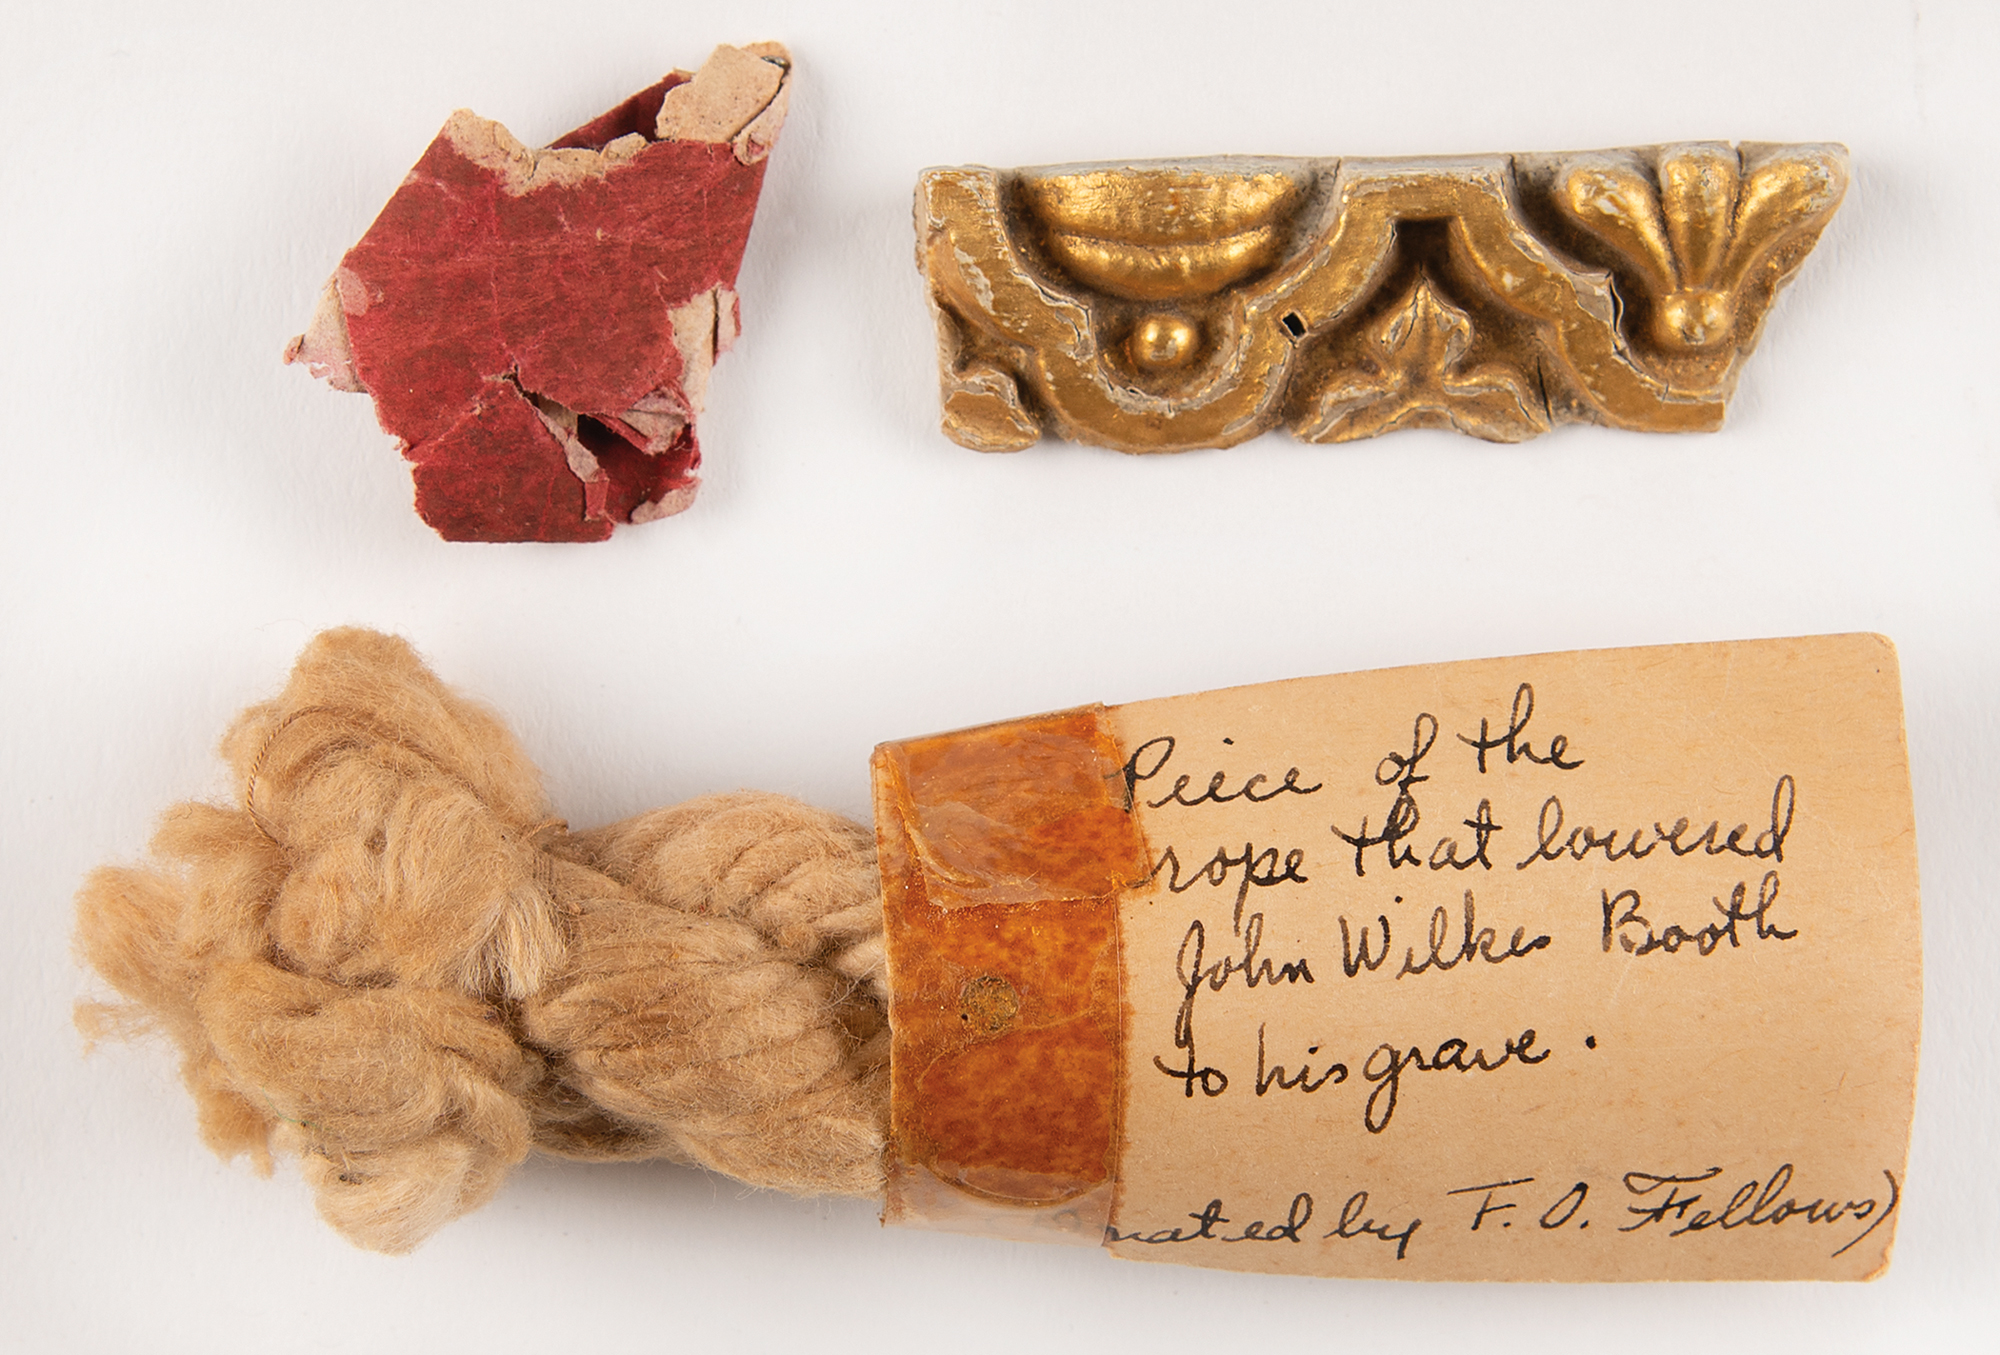 Peice of the
rope that lowered
John Wilkes Booth
to his grave.
nated by F. O. Fellows)